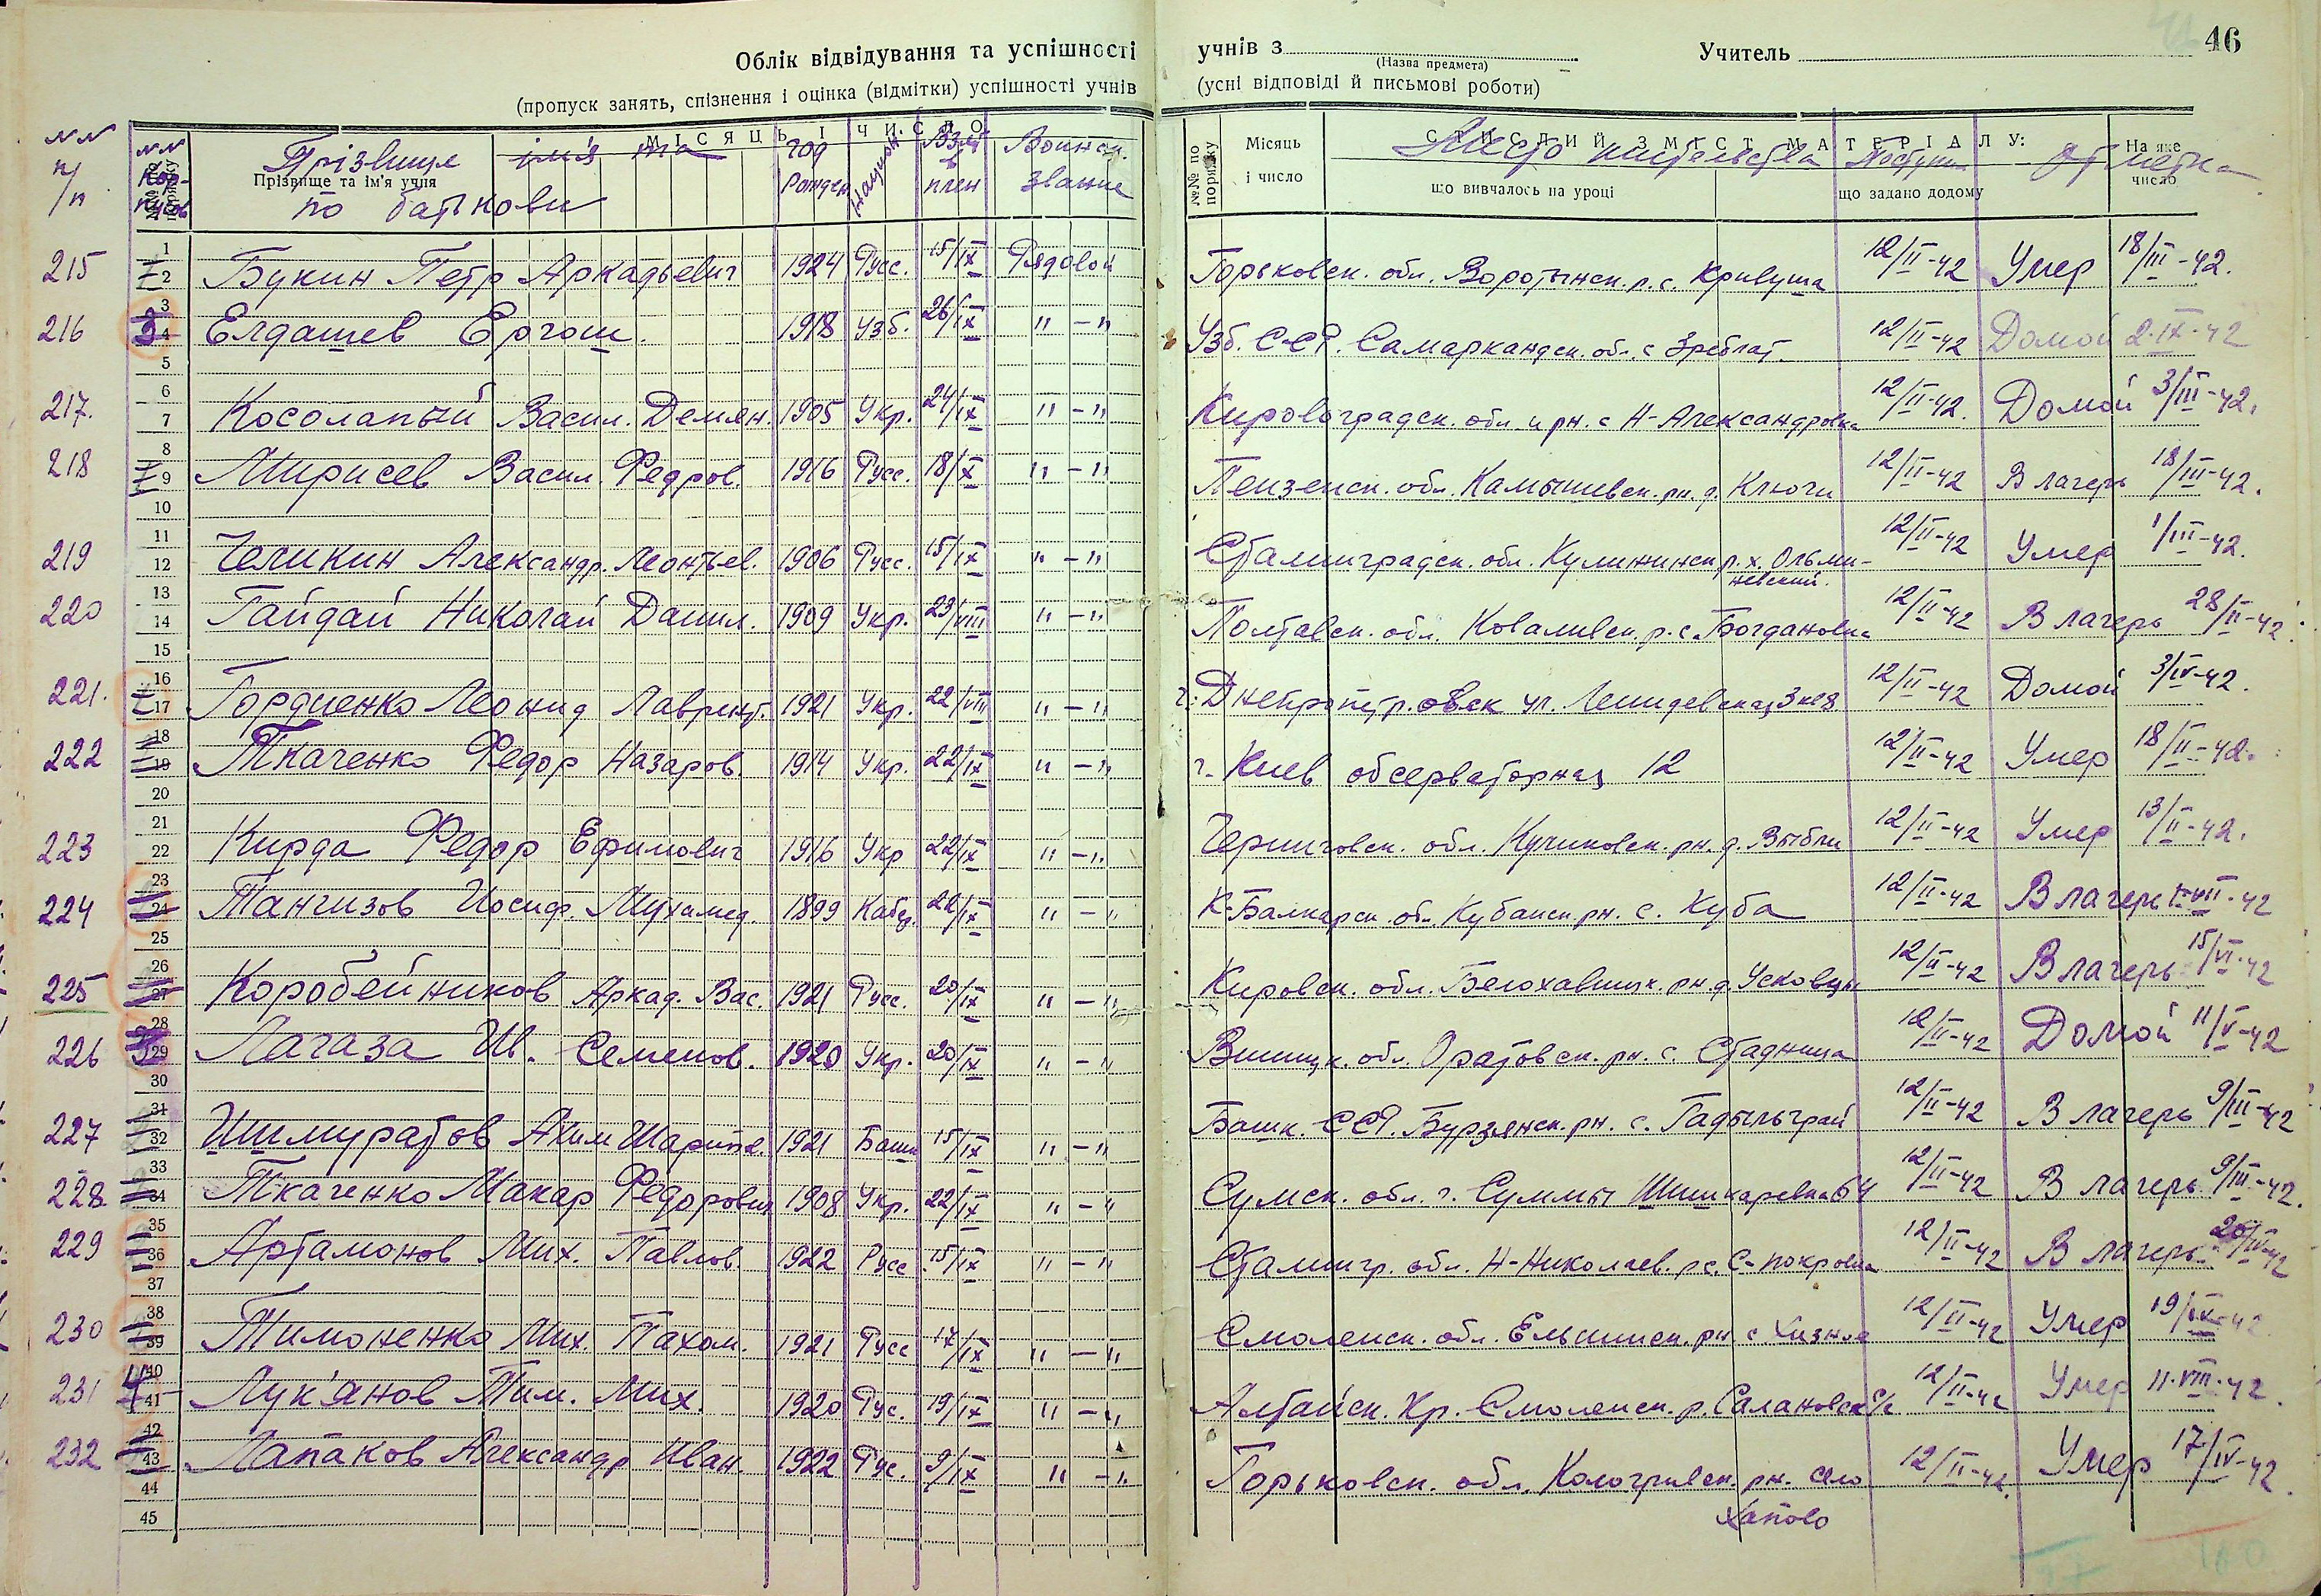 Облік відвідування та успішності учнів з
(Назва предмета)
Учитель
46
(пропуск занять, спізнення і оцінка (відмітки) успішності учнів (усні відповіді й письмові роботи)
№№ п/п
№№ Кор-пусов
МІСЯЦЬ І ЧИСЛО
Прізвище ім'я та
Прізвище та ім'я учня
по батькови
год Рожден
Национ
Взят в плен
Воинск. звание
№№ по порядку
Місяць і число
СТИСЛИЙ ЗМІСТ МАТЕРІАЛУ:
Место жительства
Поступ.
отметка
На яке число
що вивчалось на уроці
що задано додому
215 I Букин Петр Аркадьевич 1924 Русс. 15/IX Рядовой Горьковск. обл. Воротынск. р. с. Кривуша 12/II-42 Умер 18/III-42.
216 3 Елдашев Ергош. 1918 Узб. 26/IX " - " Узб. ССР. Самаркандск. обл. с 12/II-42 Домой 2.IX-42
217. Косолапый Васил. Демян. 1905 Укр. 24/IX " - " Кировоградск. обл. и рн. с Н-Александровка 12/II-42. Домой 3/III-42.
218 I Мирисев Васил. Федров. 1916 Русс. 18/X " - " Пензенск. обл. Камышевск. рн. д. Ключи 12/II-42 В лагерь 18/III-42.
219 Челикин Александр. Леонтьев. 1906 Русс. 15/IX " - " Сталинградск. обл. р. х. Ольми-
невский.
12/II-42 Умер 1/III-42.
220 Гайдай Николай Данил. 1909 Укр. 23/VIII " - " Полтавск. обл. Ковалевск. р. с. Богдановка 12/II-42 В лагерь 28/II-42.
221. I Гордиенко Леонид Лаврент. 1921 Укр. 22/VIII " - " г. Днепропетровск ул. 12/II-42 Домой 3/IV-42.
222 Ткаченко Федор Назаров. 1914 Укр. 22/IX " - " г. Киев обсерваторная 12 12/II-42 Умер 18/II-42.
223 Кирда Федор Ефимович 1916 Укр 22/IX " - " Черниговск. обл. Куликовск. рн. д. Выбли 12/II-42 Умер 13/II-42.
224 Тангизов Иосиф. Мухамед. 1899 22/IX " - " К-Балкарск. об. Кубанск. рн. с. Куба 12/II-42 В лагерь 42
225 Коробейников Аркад. Вас. 1921 Русс. 20/IX " - " Кировск. обл. рн. д. Усковцы 12/II-42 В лагерь 15/VI-42
226 Лагаза Ив. Семенов. 1920 Укр. 20/IX " - " Винницк. обл. Оратовск. рн. с. Стадница 12/II-42 Домой 11/V-42
227 Ишмуратов Аким Шарип. 1921 Башк 15/IX " - " Башк. ССР. Бурзянск. рн. с. 12/II-42 В лагерь 9/III-42
228 Ткаченко Макар Федорович 1908 Укр. 22/IX " - " Сумск. обл. г. Суммы 64 12/II-42 В лагерь 9/III-42.
229 Артамонов Мих. Павлов. 1922 Русс 15/IX " - " Сталингр. обл. Н-Николаев. р с. С-покровка 12/II-42 В лагерь 20/IV-42
230 Тимоненко Мих. Пахом. 1921 Русс 17/IX " - " Смоленск. обл. Ельнинск. рн. с 12/II-42 Умер 19/IX-42
231 Лук'янов Тим. Мих. 1920 Рус. 19/IX " - " Алтайск. Кр. Смоленск. р. с/с 12/II-42 Умер 11.VIII.42.
232 Лапаков Александр Иван. 1922 Рус. 9/IX " - " Горьковск. обл. Кологривск. рн. село
Хапово
12/II-42. Умер 17/IV-42.